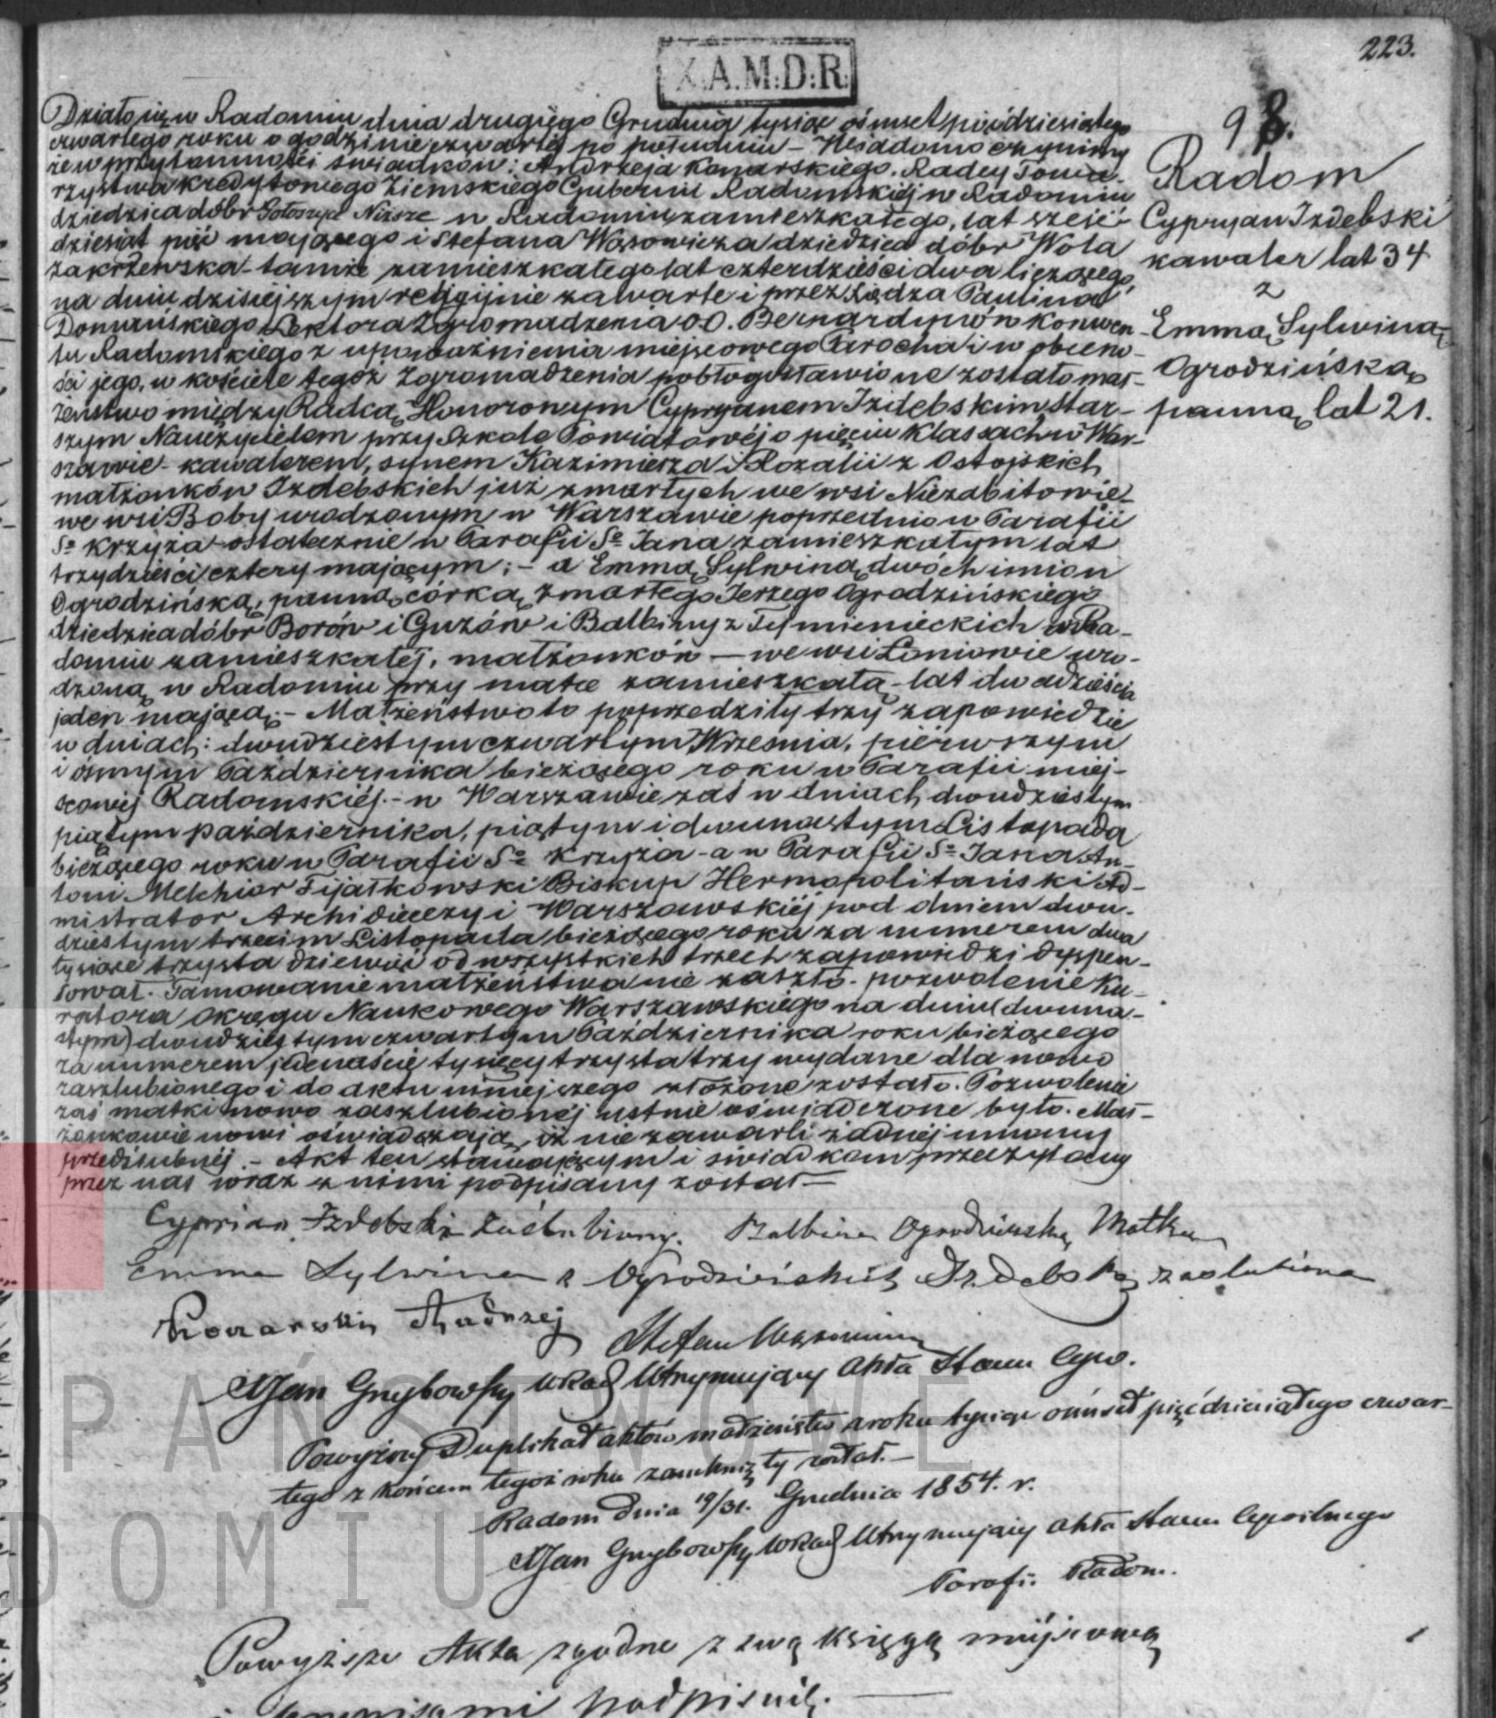 223.
X.A.M.D:R.
98.
Radom
Cypryan Izdebski
kawaler lat 34
z
Emmą Sylwiną
Ogrodzińską
panną lat 21.
Działo się w Radomiu dnia drugiego Grudnia tysiąc ośmset pięćdziesiątego
czwartego roku o godzinie czwartej po południu – Wiadomo czynimy
że w przytomności świadków: Andrzeja Konarskiego, Radcy Towa-
rzystwa Kredytowego Ziemskiego Gubernii Radomskiéj w Radomiu
dziedzica dóbr Gołoszyce Niższe w Radomiu zamieszkałego, lat sześć-
dziesiąt pięć mającego i Stefana Wąsowicza dziedzica dóbr Wola
Zakrzewska – tamże zamieszkałego lat czterdzieści dwa liczącego,
na dniu dzisiejszym religijnie zawarte i przez Xiędza Paulina
Lektora Zgromadzenia OO. Bernardynów Konwen-
tu Radomskiego z upoważnienia miejscowego Parocha i w obecno-
ści jego, w kościele tegoż Zgromadzenia pobłogosławione zostało mał-
żeństwo między Radcą Honorowym Cypryanem Izdebskim Star-
szym Nauczycielem przy Szkole Powiatowéj o pięciu Klassach w War-
szawie – kawalerem, synem Kazimierza i Rozalii z Ostojskich
małżonków Izdebskich już zmarłych we wsi Niezabitowie –
we wsi Boby urodzonym w Warszawie poprzednio w Parafii
Sgo Krzyża ostatecznie w Parafii Sgo Jana zamieszkałym lat
trzydzieści cztery mającym; – a Emmą Sylwiną dwóch imion
Ogrodzińską, panną, córką zmarłego Jerzego Ogrodzińskiego
dziedzica dóbr Borów i Guzów i Balbiny z Tymienieckich w Ra-
domiu zamieszkałéj, małżonków – we wsi Łoniowie uro-
dzoną w Radomiu przy matce zamieszkałą – lat dwadzieścia
jeden mającą; – Małżeństwo to poprzedziły trzy zapowiedzie
w dniach: dwudziestym czwartym Września, pierwszym
i ósmym Października bieżącego roku w Parafii miej-
scowéj Radomskiéj – w Warszawie zaś w dniach dwudziestym
piątym października, piątym i dwunastym Listopada
bieżącego roku w Parafii Sgo Krzyża – a w Parafii Sgo Jana An-
toni Melchior Fijałkowski Biskup Hermopolitański Ad-
mistrator Archidiecezyi Warszawskiéj pod dniem dwu-
dziestym trzecim Listopada bieżącego roku za numerem dwa
tysiące trzysta dziewięć od wszystkich trzech zapowiedzi dyspen-
sował. Tamowanie małżeństwa nie zaszło. pozwolenie Ku-
ratora Okręgu Naukowego Warszawskiego na dniu (dwuna-
stym) dwudziestym czwartym Października roku bieżącego
za numerem jedenaście tysięcy trzysta trzy wydane dla nowo
zaszlubionego i do aktu niniejszego złożone zostało. Pozwolenie
zaś matki nowo zaszlubionéj ustnie oświadczone było. Mał-
żonkowie nowi oświadczają, iż nie zawarli żadnéj umowy
przedślubnéj. – Akt ten stawającym i świadkom przeczytany
przez nas wraz z nimi podpisany został –
Cyprian Izdebski Zaślubiony. Balbina Ogrodzińska Matka
Emma Sylwina z Ogrodzińskich Izdebska zaślubiona
Konarski Andrzej
Stefan Wąsowicz
XJan Gnybowski Utrzymujący Akta Stanu Cyw.
Powyższy Duplikat aktów małżeństw z roku tysiąc ośmset pięćdziesiątego czwar-
tego z końcem tegoż roku zamknięty został. –
Radom dnia 19/31. Grudnia 1854. r.
XJan Gnybowski Utrzymujący Akta Stanu Cywilnego
Parafi: Radom.
Powyższe Akta zgodne z swą księgą miejscową
i podpisuię. –
PAŃSTWOWE
DOMIU